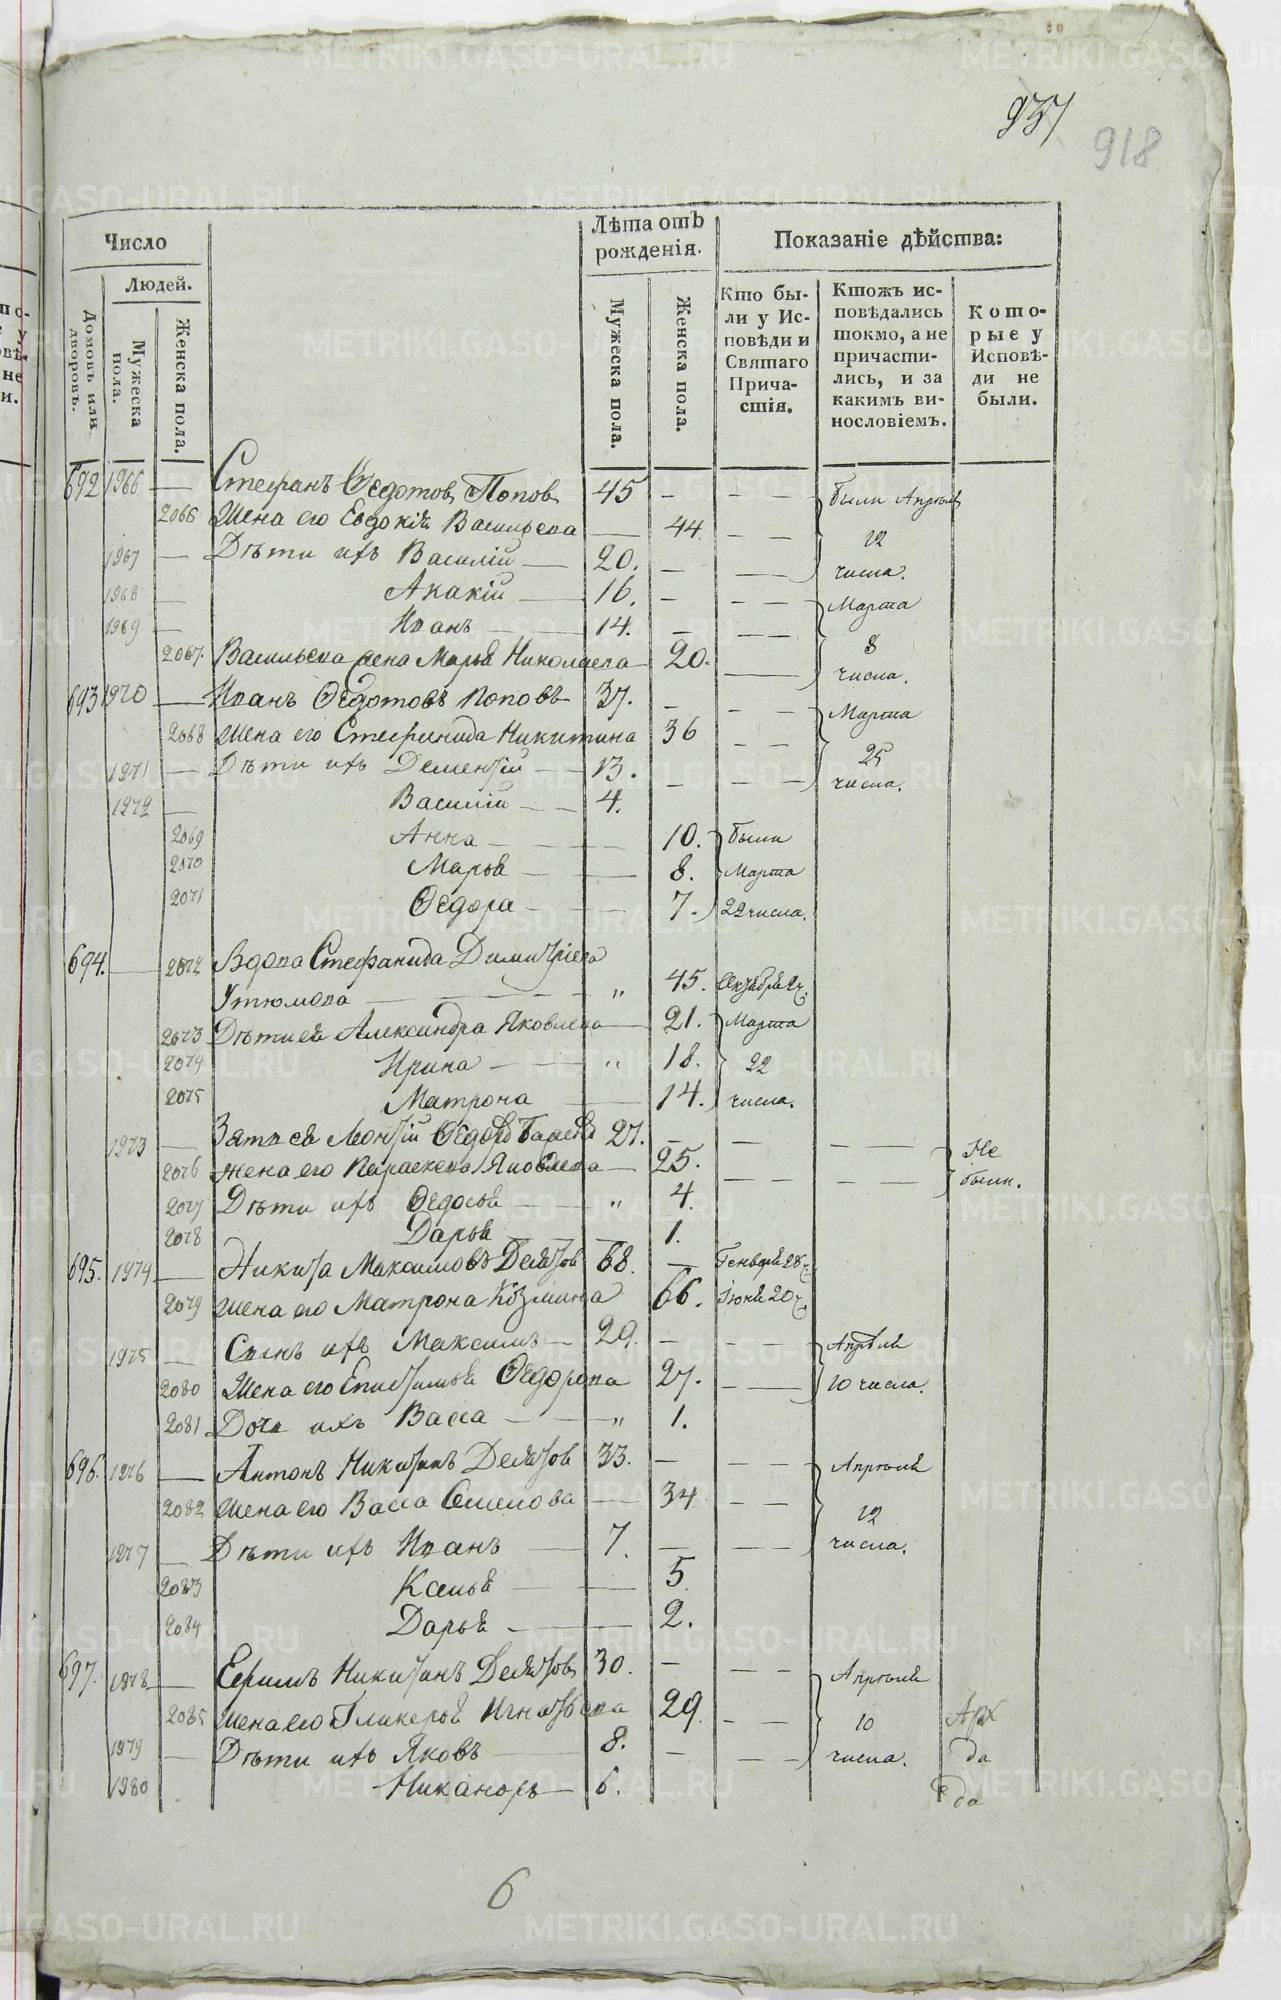 937
918
Число
Лѣта отъ рожденія.
Показаніе дѣйства:
Людей.
Домовъ или дворовъ.
Мужеска пола.
Женска пола.
Мужеска пола.
Женска пола.
Кто бы-
ли у Ис-
повѣди и
Святаго
Прича-
стія.
Ктожъ ис-
повѣдались
токмо, а не
причасти-
лись, и за
какимъ ви-
нословіемъ.
Кото-
рые у
Исповѣ-
ди не
были.
692 1966 — Стефанъ Ѳедотов Попов 45 — — — были Апрѣля
2066 Жена его Евдокія Васильева — 44 — — 12
1967 — Дѣти ихъ Василій — 20. — — числа.
1968 — Акакій — 16. — — — Марта
1969 — Иванъ — 14. — — — 8
2067. Васильева жена Марья Николаева — 20. — числа.
693 1970 — Иванъ Ѳедотовъ Поповъ 37. — — — Марта
2068 Жена его Стефанида Никитина 36 — — 25
1971 — Дѣти ихъ Дементій — 13. — — — числа.
1972 — Василій — — 4.
2069 Анна — — — 10. были
2070 Марья — — 8. Марта
2071 Ѳедора — — 7. 22 числа.
694. — 2072 Вдова Стефанида Димитріева
Утюмова — — — „ 45. Октября
2073 Дѣти ея Александра Яковлева — 21. Марта
2074 Ирина — — „ 18. 22
2075 Матрона — 14. числа.
1973 — Зять ея Леонтій Ѳедоров 27. — — — Не
2076 жена его Параскева Яковлева — 25. — — — — были.
2077 Дѣти ихъ Ѳедосья — „ 4.
2078 Дарья — — 1.
695. 1974 — Никита Максимовъ Девятов 68. — Генваря 28 ч.
2079 Жена его Матрона Козмина 66. Іюня 20 ч.
1975 — Сынъ ихъ Максимъ — 29. — — — Апрѣля
2080 Жена его Епистимья Ѳедорова 27. — — 10 числа.
2081 Дочь ихъ Васса — — „ 1.
696. 1976 — Антонъ Никитинъ Девятов 33. — — — Апрѣля
2082 Жена его Васса Семенова — 34 — — 12
1977 — Дѣти ихъ Иванъ — 7. — — — числа.
2083 Ксенья — — 5
2084 Дарья — — 2.
697. 1978 — Ефимъ Никитинъ Девятов 30. — — — Апрѣля
2085 Жена его Гликерья Игнатьева 29. — — 10
1979 — Дѣти ихъ Яковъ — 8. — — — числа. да
1980 Никаноръ — 6. да
6
METRIKI.GASO-URAL.RU